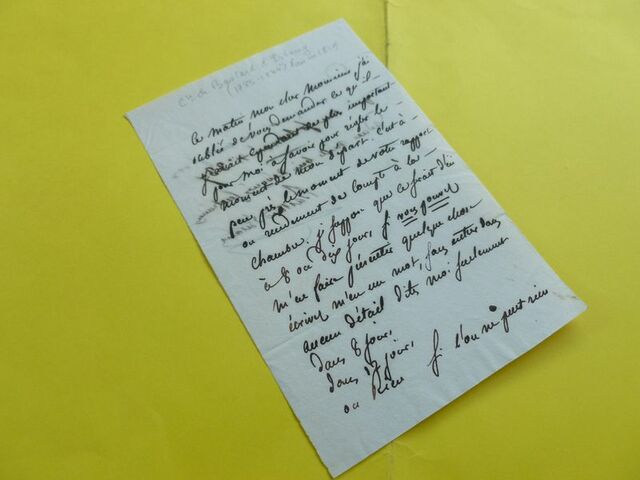 Cte de Bastard d'Estang
ce matin mon cher monsieur j'ai
oublié de vous demander ce qu'il
était cependant de plus important
pour moi à savoir pour régler le
moment de mon départ. c'est à
peu près le moment de votre rapport
ou rendement de compte à la
chambre. je suppose que ce serait d'ici
à 8 ou dix jours, si vous pouvez
m'en faire pressentir quelque chose
écrivez m'en un mot, sans entrer dans
aucun détail dites moi seulement
dans 8 jours,
dans 12 jours,
ou Rien si l'on ne peut rien